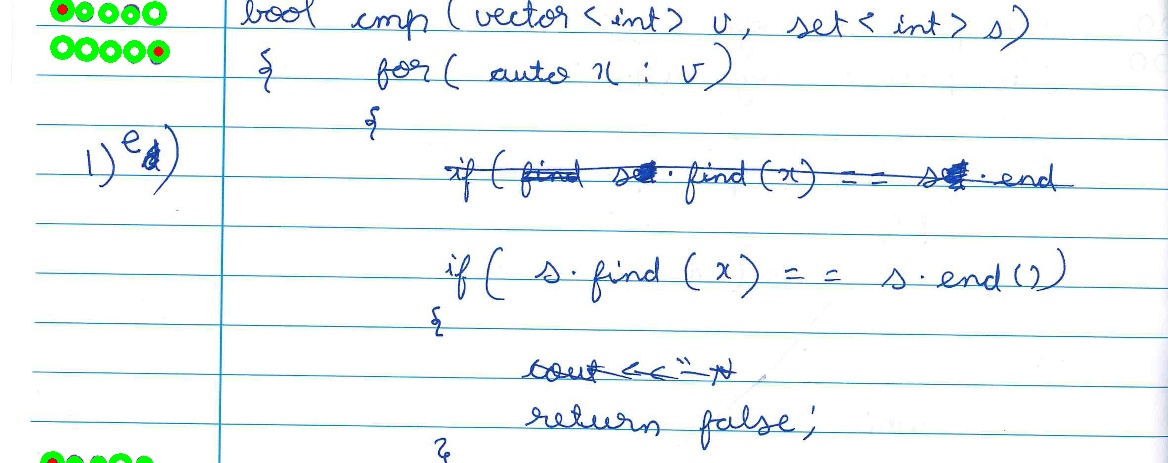 bool cmp (vector <int> v, set < int > s)
{ for ( auto x : v )
{
1) e)
if ( find s . find (x) == s . end
if ( s. find (x) == s. end ())
{
cout <<"
return false;
}